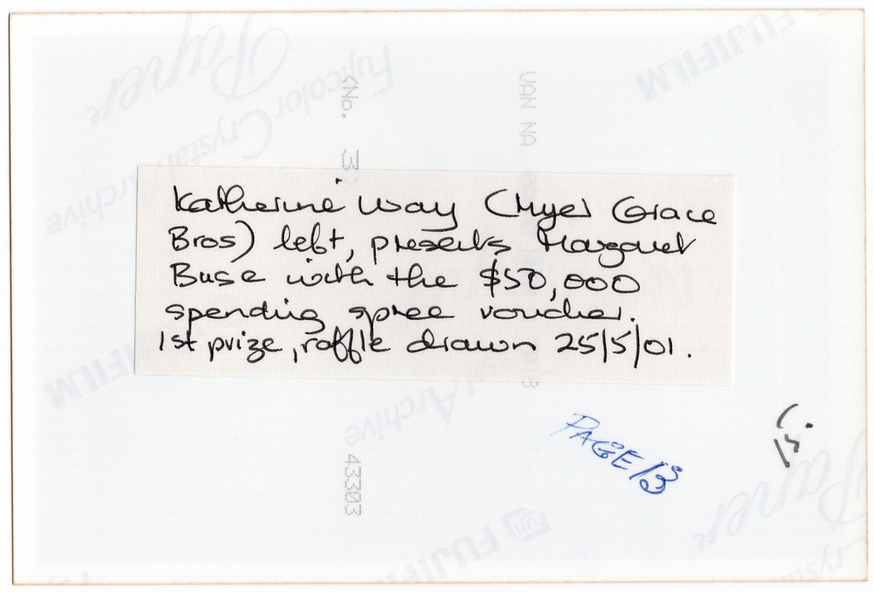 Katherine Way (Myer Grace
Bros) left, presents Margaret
Buse with the $50,000
spending spree voucher.
1st prize, raffle drawn 25/5/01.
PAGE 13
Fujicolor Crystal Archive
Paper
FUJIFILM
<No. 3
VAN NA
FUJIFILM
Archive
43303
FUJIFILM
Paper
Crystal